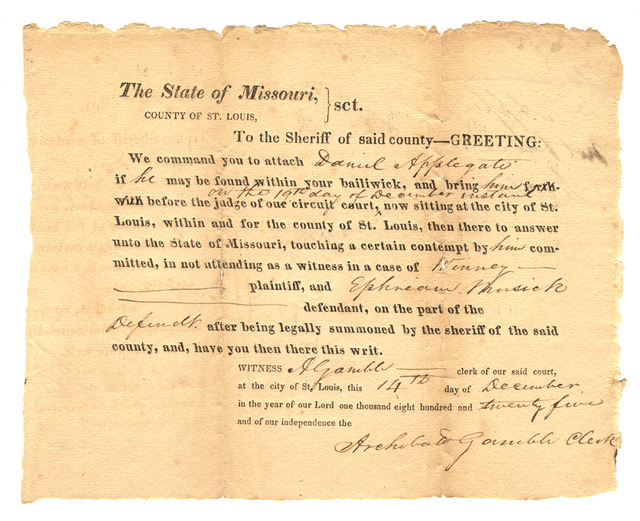 The State of Missouri, } sct.
COUNTY OF ST. LOUIS,
To the Sheriff of said county—GREETING:
We command you to attach Daniel Applegate
if he may be found within your bailiwick, and bring him forth-
on the 19th day of December instant
with before the judge of our circuit court, now sitting at the city of St.
Louis, within and for the county of St. Louis, then there to answer
unto the State of Missouri, touching a certain contempt by him com-
mitted, in not attending as a witness in a case of Kinney —
plaintiff, and Ephream Musick
defendant, on the part of the
Defendt. after being legally summoned by the sheriff of the said
county, and, have you then there this writ.
WITNESS A Gamble clerk of our said court,
at the city of St. Louis, this 14th day of December
in the year of our Lord one thousand eight hundred and twenty five
and of our independence the
Archibald Gamble Clerk